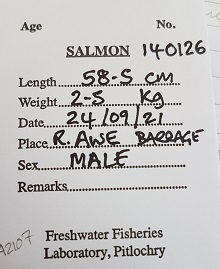 Age No.
SALMON 140126
Length 58-5 CM
Weight 2-5 Kg
Date 24/09/21
Place R. AWE BARRAGE
Sex MALE
Remarks
A2107
Freshwater Fisheries
Laboratory, Pitlochry